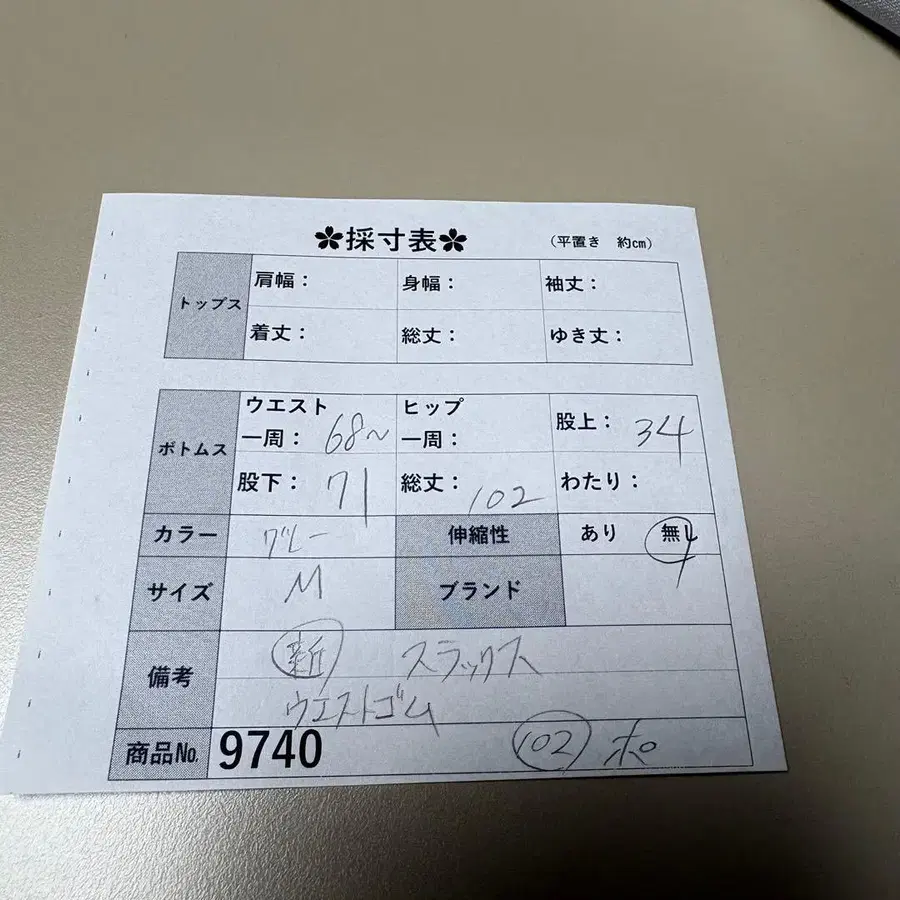 ✿採寸表✿ (平置き 約cm)
トップス 肩幅: 身幅: 袖丈:
着丈: 総丈: ゆき丈:
ボトムス ウエスト一周: 68~ ヒップ一周: 股上: 34
股下: 71 総丈: 102 わたり:
カラー グレー 伸縮性 あり 無し
サイズ M ブランド
備考 新 スラックス
ウエストゴム
商品No. 9740 102 ポ